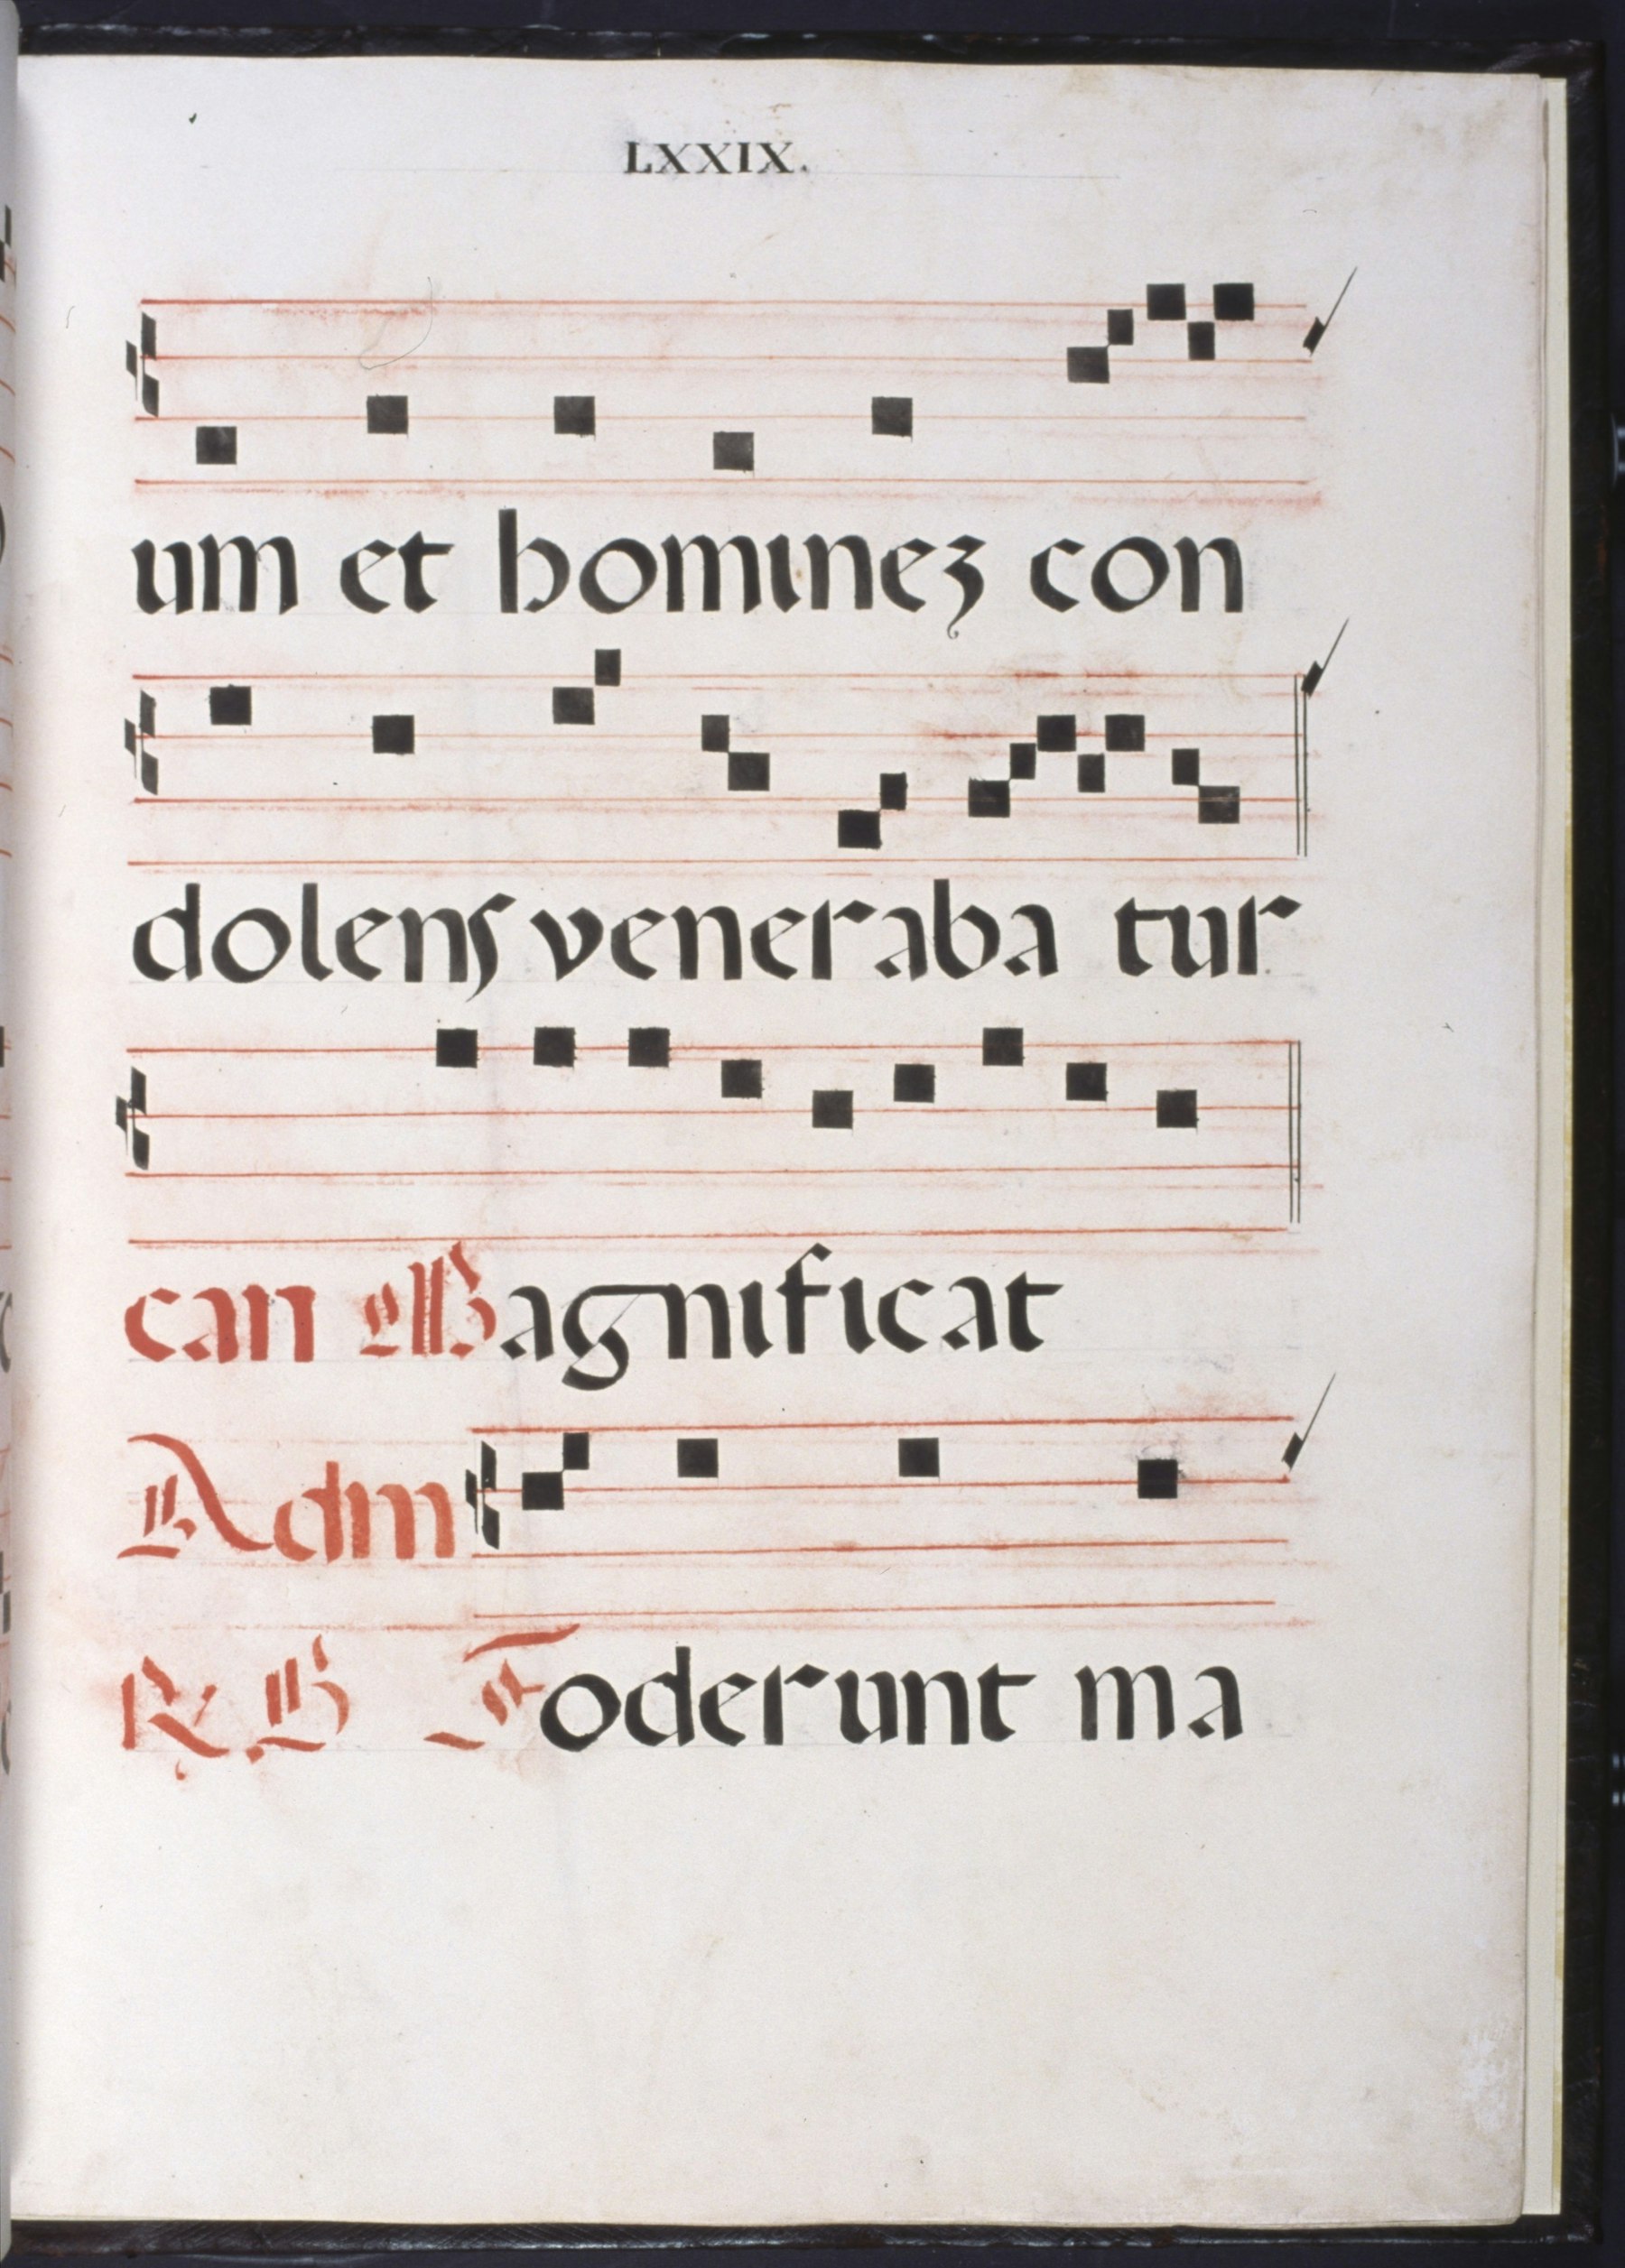 LXXIX.
um et hominez con
dolens veneraba tur
can Magnificat
Adm
R B Foderunt ma